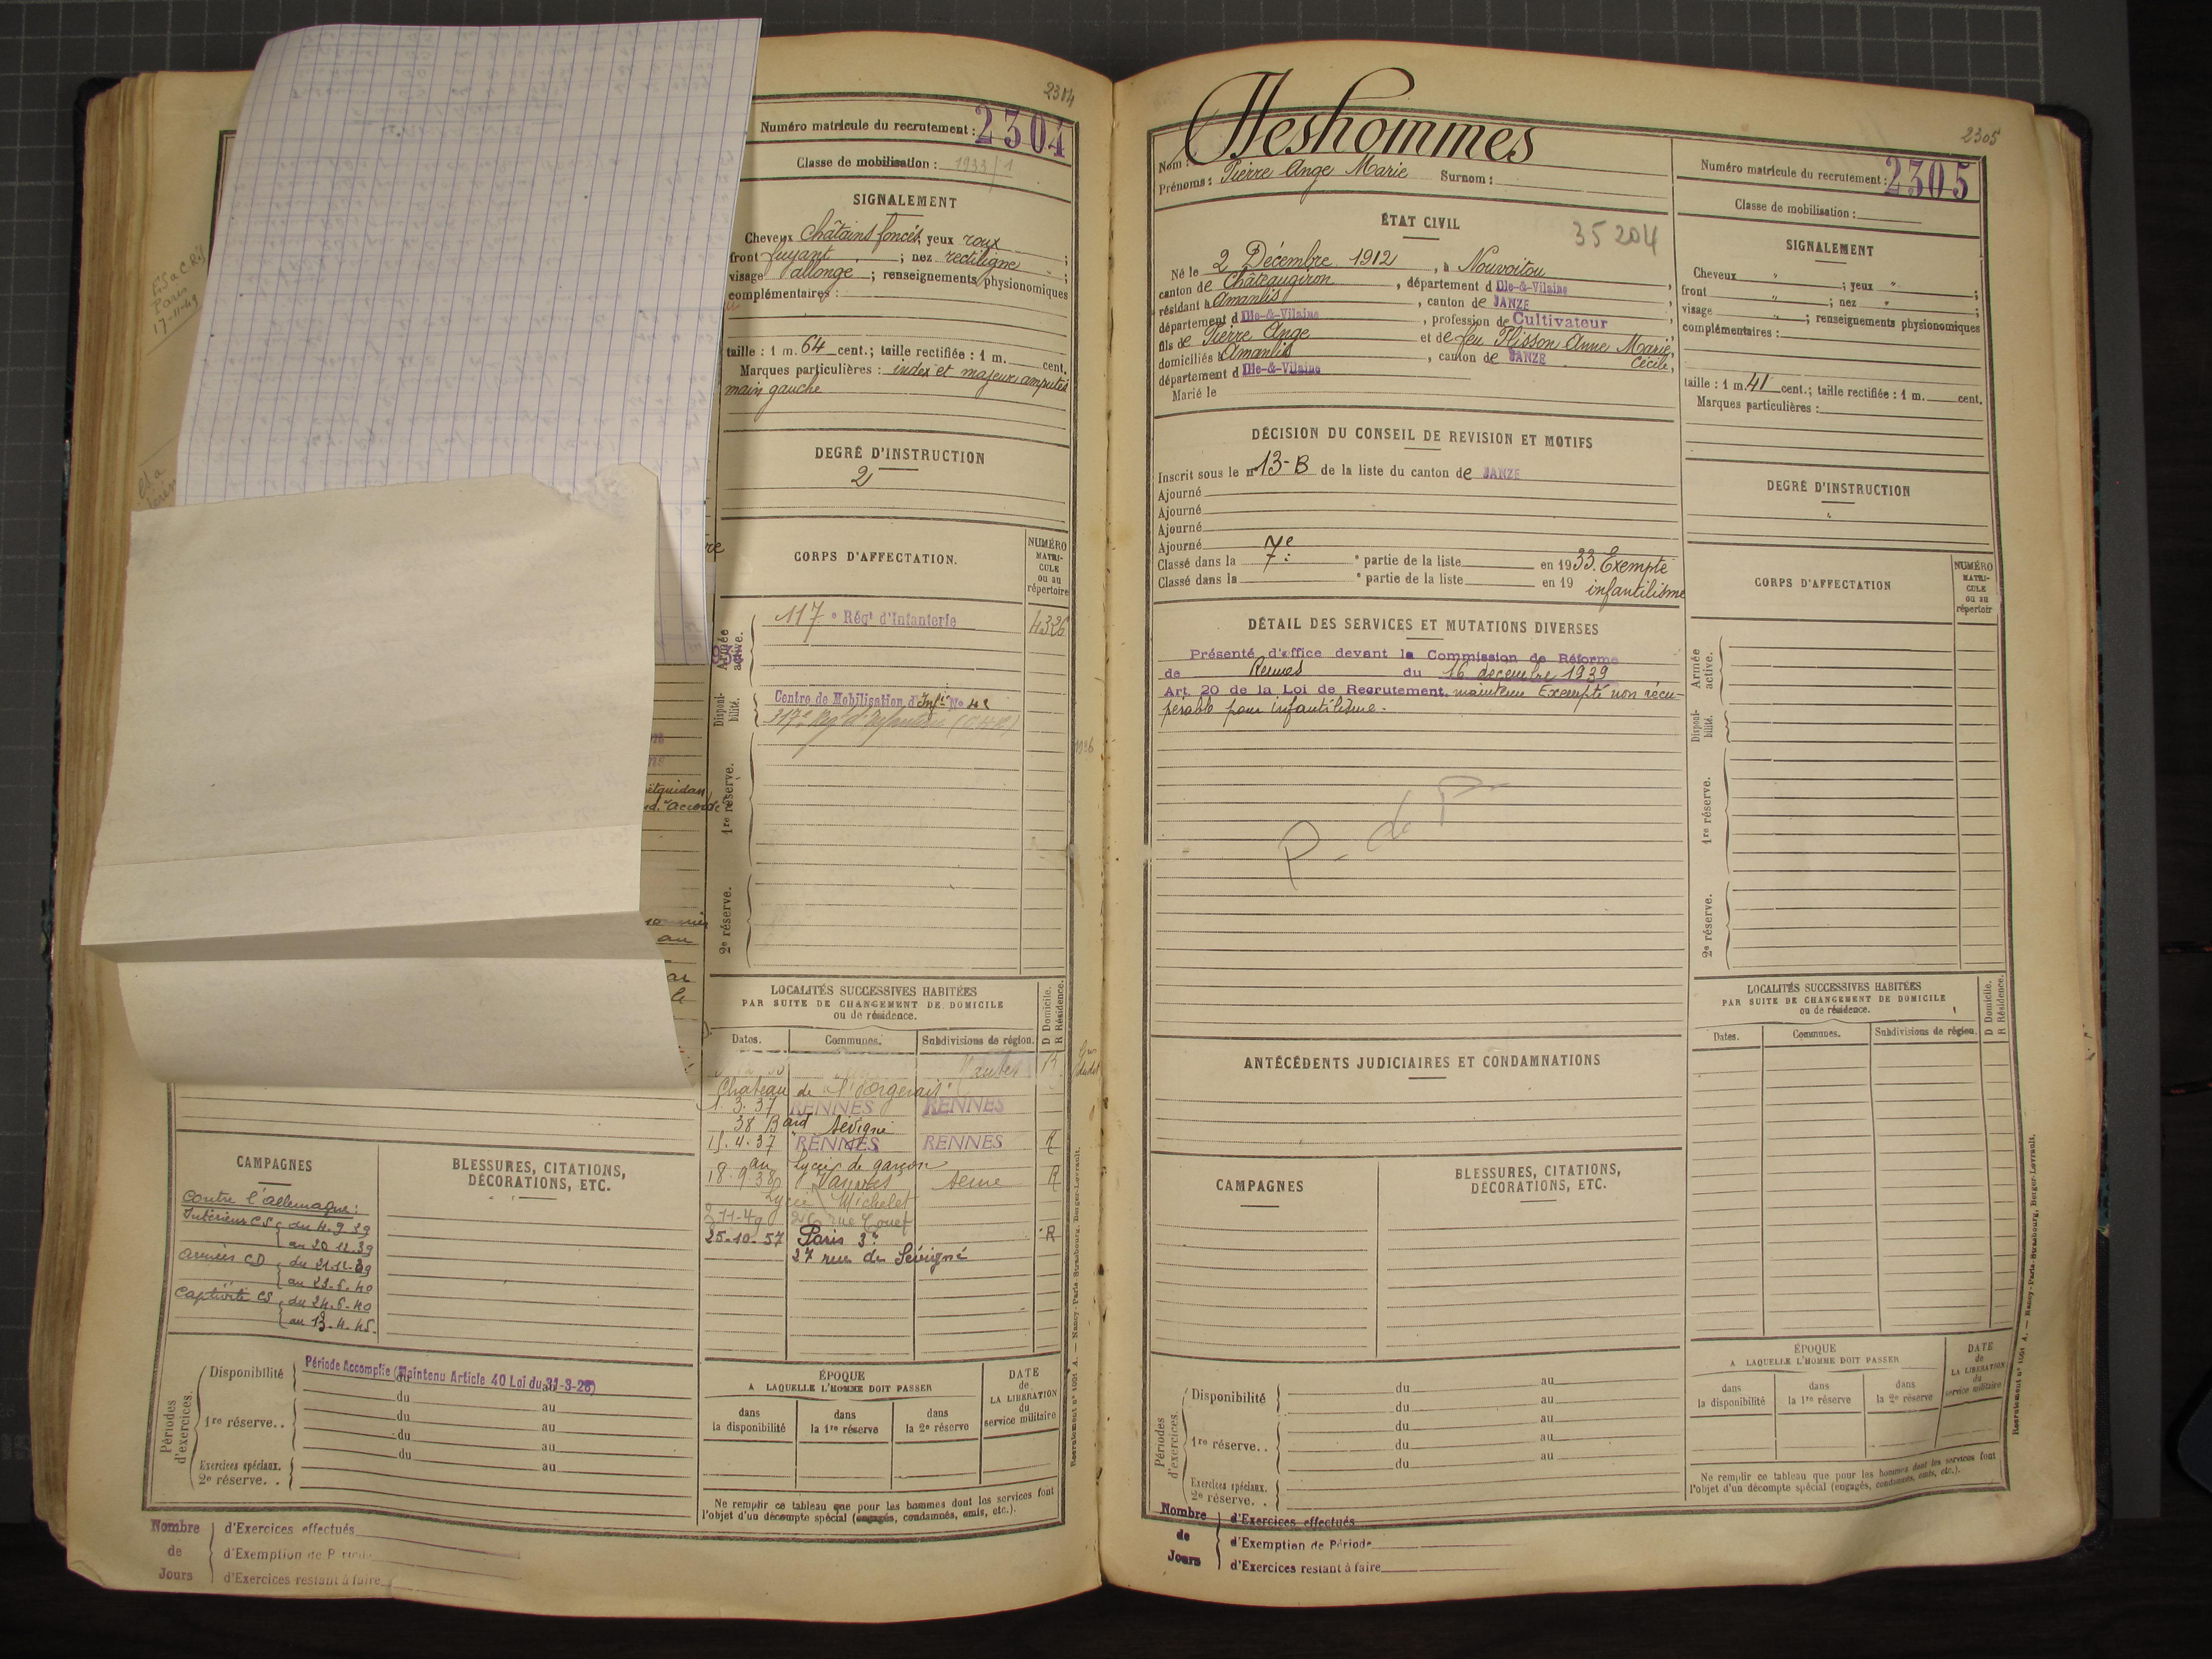 2304
Numéro matricule du recrutement : 2304
Classe de mobilisation : 1933/1
SIGNALEMENT
Cheveux Châtains foncés, yeux roux ;
front fuyant ; nez rectiligne ;
visage allongé ; renseignements physionomiques
complémentaires :
taille : 1 m. 64 cent.; taille rectifiée : 1 m. cent.
Marques particulières : index et majeur amputés
main gauche
DEGRÉ D'INSTRUCTION
2
CORPS D'AFFECTATION.
NUMÉRO MATRI-CULE ou au répertoire
Armée active.
117e Régt d'Infanterie
4326
Disponi-bilité.
Centre de Mobilisation d'Infie No 42
317e Regt d'Infanterie
1re réserve.
2e réserve.
LOCALITÉS SUCCESSIVES HABITÉES
PAR SUITE DE CHANGEMENT DE DOMICILE
ou de résidence.
D Domicile.
R Résidence.
Dates. Communes. Subdivisions de région.
Chateau de
1. 3. 37 RENNES RENNES
38 Bard Sévigné
15. 4. 37 RENNES RENNES R
au Lycée de garçon
18. 9. 38 Vanves Seine R
Lycée Michelet
25-10-57 Paris 3e R
27 rue de Sévigné
CAMPAGNES
BLESSURES, CITATIONS,
DÉCORATIONS, ETC.
Contre l'allemagne :
Intérieur CS du 4.9.39
au 20.12.39
Armées CD du 21.12.39
au 23.6.40
Captivité CS du 24.6.40
au 13.4.45.
Périodes d'exercices.
Disponibilité
Période Accomplie (Maintenu Article 40 Loi du 31-3-28)
du au
1re réserve. . du au
du au
du au
Exercices spéciaux.
2e réserve. .
ÉPOQUE
A LAQUELLE L'HOMME DOIT PASSER
DATE de LA LIBERATION du service militaire
dans la disponibilité
dans la 1re réserve
dans la 2e réserve
Ne remplir ce tableau que pour les hommes dont les services font
l'objet d'un décompte spécial (engagés, condamnés, omis, etc.).
Nombre de Jours
d'Exercices effectués
d'Exemption de Période
d'Exercices restant à faire
2305
Nom : Deshommes
Prénoms : Pierre Ange Marie Surnom :
Numéro matricule du recrutement : 2305
Classe de mobilisation :
ÉTAT CIVIL
35204
Né le 2 Décembre 1912, à Nouvoitou,
canton de Châteaugiron, département d Ille-&-Vilaine,
résidant à Amanlis, canton de JANZE,
département d Ille-&-Vilaine, profession de Cultivateur
fils de Pierre Ange et de feu Plisson Anne Marie,
Cécile,
domiciliés à Amanlis, canton de JANZE
département d Ille-&-Vilaine
Marié le
SIGNALEMENT
Cheveux " ; yeux " ;
front " ; nez " ;
visage " ; renseignements physionomiques
complémentaires :
taille : 1 m. 41 cent.; taille rectifiée : 1 m. cent.
Marques particulières :
DÉCISION DU CONSEIL DE REVISION ET MOTIFS
Inscrit sous le n° 13-B de la liste du canton de JANZE
Ajourné
Ajourné
Ajourné
Ajourné
Classé dans la 7e partie de la liste en 1933. Exempté
Classé dans la e partie de la liste en 19 infantilisme
DEGRÉ D'INSTRUCTION
DÉTAIL DES SERVICES ET MUTATIONS DIVERSES
Présenté d'office devant la Commission de Réforme
de Rennes du 16 decembre 1939
Art. 20 de la Loi de Recrutement. maintenu Exempté non récu-
pérable pour infantilisme.
P. de P.
CORPS D'AFFECTATION
NUMÉRO MATRI-CULE ou au répertoir
Armée active.
Disponi-bilité.
1re réserve.
2e réserve.
ANTÉCÉDENTS JUDICIAIRES ET CONDAMNATIONS
LOCALITÉS SUCCESSIVES HABITÉES
PAR SUITE DE CHANGEMENT DE DOMICILE
ou de résidence.
D Domicile.
R Résidence.
Dates. Communes. Subdivisions de région.
CAMPAGNES
BLESSURES, CITATIONS,
DÉCORATIONS, ETC.
Périodes d'exercices.
Disponibilité du au
du au
1re réserve. . du au
du au
du au
Exercices spéciaux.
2e réserve. .
ÉPOQUE
A LAQUELLE L'HOMME DOIT PASSER
DATE de LA LIBERATION du service militaire
dans la disponibilité
dans la 1re réserve
dans la 2e réserve
Ne remplir ce tableau que pour les hommes dont les services font
l'objet d'un décompte spécial (engagés, condamnés, omis, etc.).
Nombre de Jours
d'Exercices effectués
d'Exemption de Période
d'Exercices restant à faire